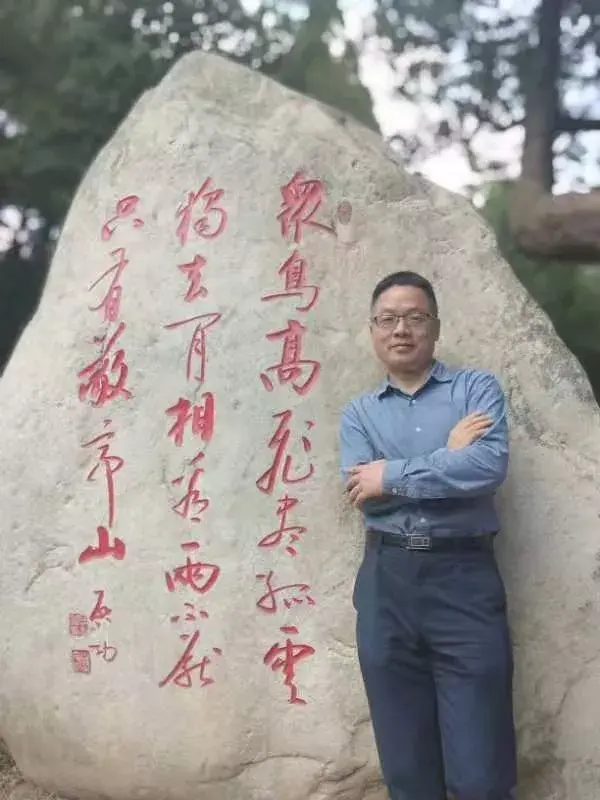 衆鳥高飛盡孤雲
獨去閒相看兩不厭
只有敬亭山
启功